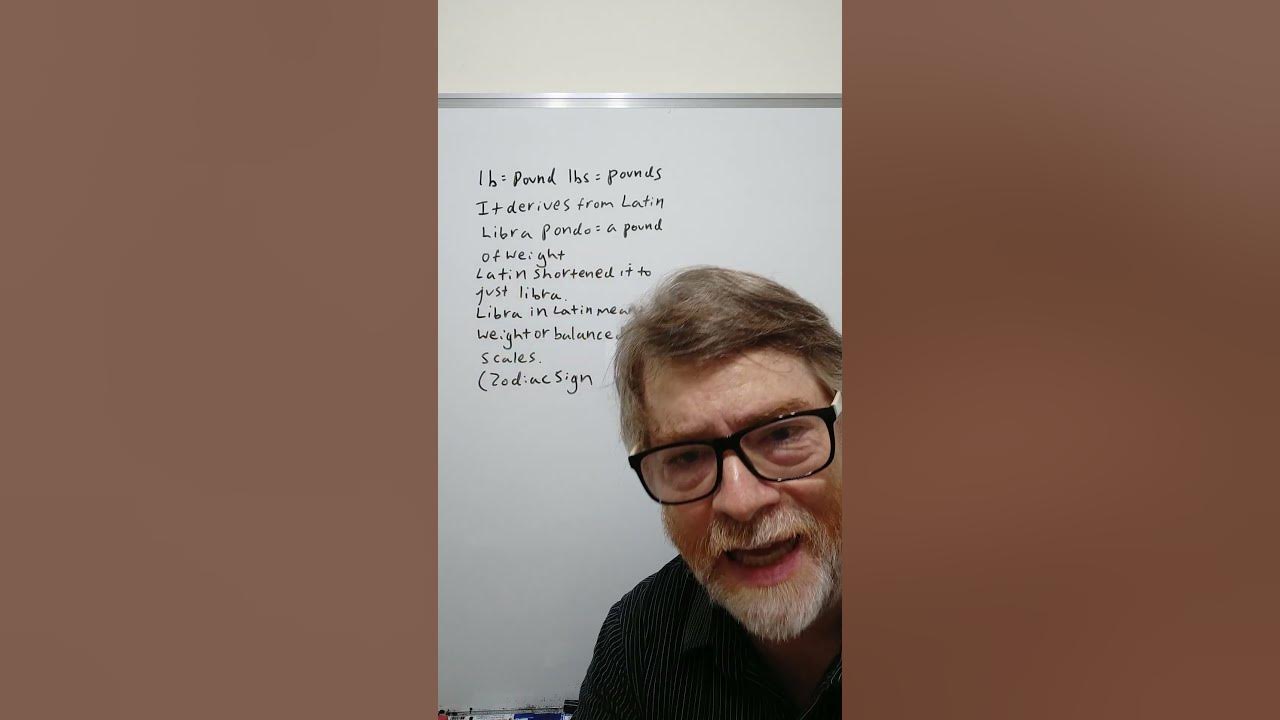 lb = pound lbs = pounds
It derives from Latin
Libra pondo = a pound
of weight
Latin shortened it to
just libra.
Libra in Latin
weight or balance
scales.
(Zodiac Sign